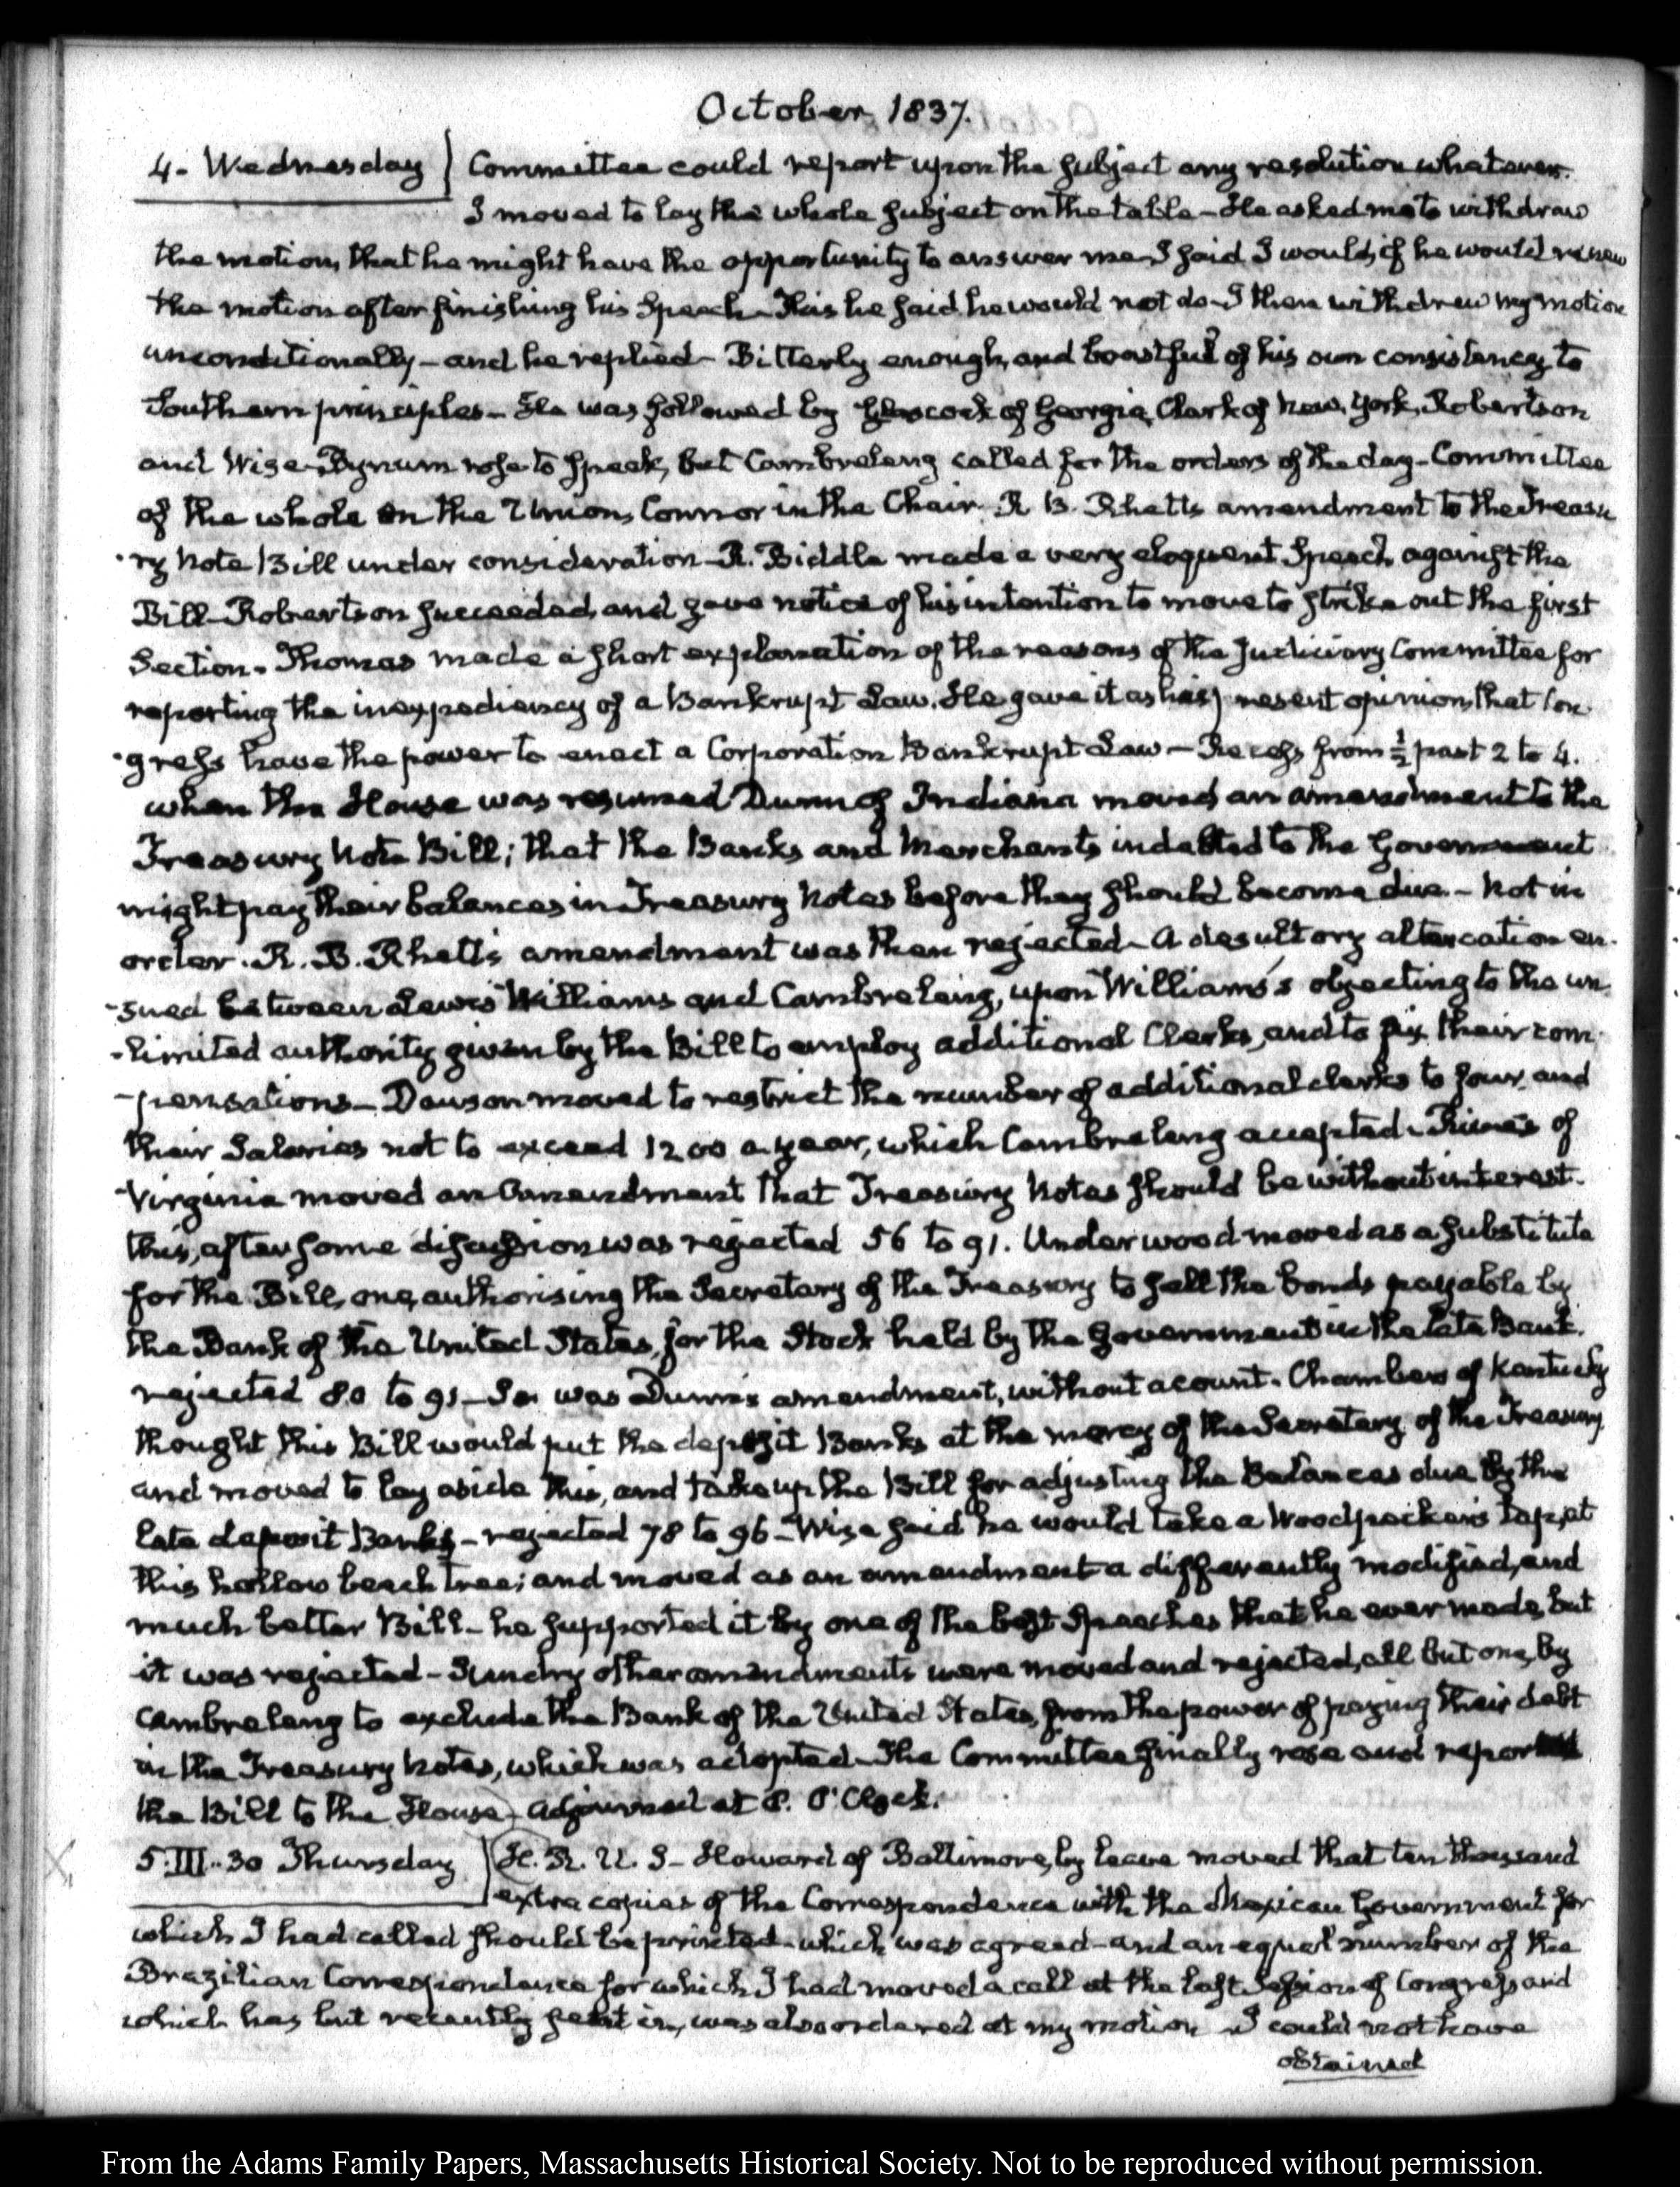 October 1837.
4. Wednesday Committee could report upon the subject any resolution whatever.
I moved to lay the whole subject on the table – He asked me to withdraw
the motion, that he might have the opportunity to answer me I said I would, if he would renew
the motion after finishing his Speech – This he said he would not do – I then withdrew my motion
unconditionally – and he replied – Bitterly enough, and boastful of his own consistency to
Southern principles – He was followed by Glascock of Georgia, Clark of New York, Robertson
and Wise – Bynum rose to speak, but Cambreleng called for the orders of the day – Committee
of the whole on the Union, Connor in the Chair. R B. Rhett's amendment to the Treasu
-ry Note Bill under consideration – R. Biddle made a very eloquent Speech against the
Bill – Robertson succeeded, and gave notice of his intention to move to strike out the first
Section. Thomas made a short explanation of the reasons of the Judiciary Committee for
reporting the inexpediency of a Bankrupt Law. He gave it as his present opinion, that Con
-gress have the power to enact a Corporation Bankrupt Law – Recess from ½ past 2 to 4.
when the House was resumed Dunn of Indiana moved an amendment to the
Treasury Note Bill; that the Banks and Merchants indebted to the Government
might pay their balances in Treasury Notes before they should become due – Not in
order. R. B. Rhett's amendment was then rejected – A desultory altercation en-
-sued between Lewis Williams and Cambreleng, upon Williams's objecting to the un-
-limited authority given by the Bill to employ additional Clerks, and to fix their com-
-pensations – Dawson moved to restrict the number of additional clerks to four, and
their Salaries not to exceed 1200 a year, which Cambreleng accepted – Rives of
Virginia moved an Amendment that Treasury Notes should be without interest.
this, after some discussion was rejected 56 to 91. Underwood moved as a substitute
for the Bill, one, authorising the Secretary of the Treasury to sell the bonds payable by
the Bank of the United States, for the Stock held by the Government in the late Bank.
rejected 80 to 91 – So was Dunn's amendment, without a count. Chambers of Kentucky
thought this Bill would put the deposit Banks at the mercy of the Secretary of the Treasury
and moved to lay aside this, and take up the Bill for adjusting the Balances due by the
late deposit Banks – rejected 78 to 96 – Wise said he would take a Woodpecker's tap, at
this hollow beech tree; and moved as an amendment a differently modified, and
much better Bill – he supported it by one of the best Speeches that he ever made, but
it was rejected – Sundry other amendments were moved and rejected, all but one, by
Cambreleng to exclude the Bank of the United States, from the power of paying their debt
in the Treasury Notes, which was adopted – The Committee finally rose and reported
the Bill to the House, Adjourned at O'Clock.
5. III.30 Thursday H. R. U. S – Howard of Baltimore, by leave moved that ten thousand
extra copies of the Correspondence with the Mexican Government for
which I had called should be printed – which was agreed – and an equal number of the
Brazilian Correspondence for which I had moved a call at the last Session of Congress and
which has but recently sent in, was also ordered at my motion – I could not have
obtained
From the Adams Family Papers, Massachusetts Historical Society. Not to be reproduced without permission.